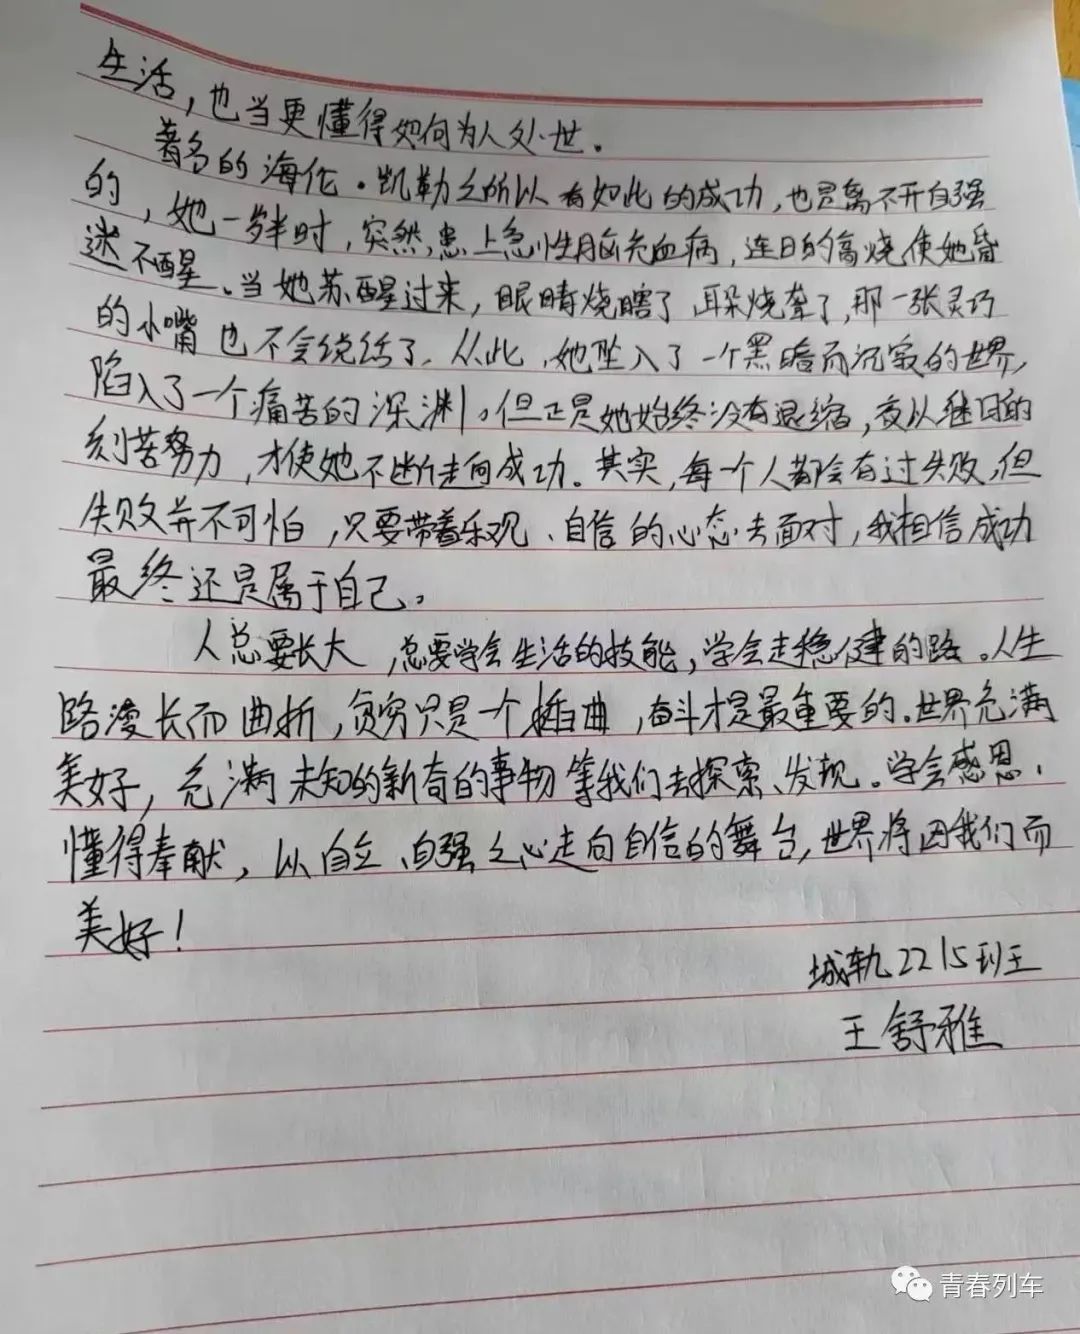 生活，也当更懂得如何为人处世。
著名的海伦·凯勒之所以有如此的成功，也是离不开自强
的，她一岁半时，突然患上急性脑充血病，连日的高烧使她昏
迷不醒。当她苏醒过来，眼睛烧瞎了，耳朵烧聋了，那一张灵巧
的小嘴也不会说话了。从此，她坠入了一个黑暗而沉寂的世界，
陷入了一个痛苦的深渊。但正是她始终没有退缩，夜以继日的
刻苦努力，才使她不断走向成功。其实，每一个人都会有过失败，但
失败并不可怕，只要带着乐观、自信的心态去面对，我相信成功
最终还是属于自己。
人总要长大，总要学会生活的技能，学会走稳健的路。人生
路漫长而曲折，贫穷只是一个插曲，奋斗才是最重要的。世界充满
美好，充满未知的新奇的事物等我们去探索、发现。学会感恩，
懂得奉献，以自立、自强之心走向自信的舞台，世界将因我们而
美好！
城轨2215班王
王舒雅
青春列车